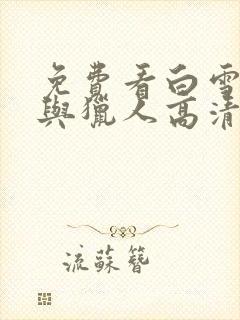 免費看白雪
與獵人高清
流蘇簪